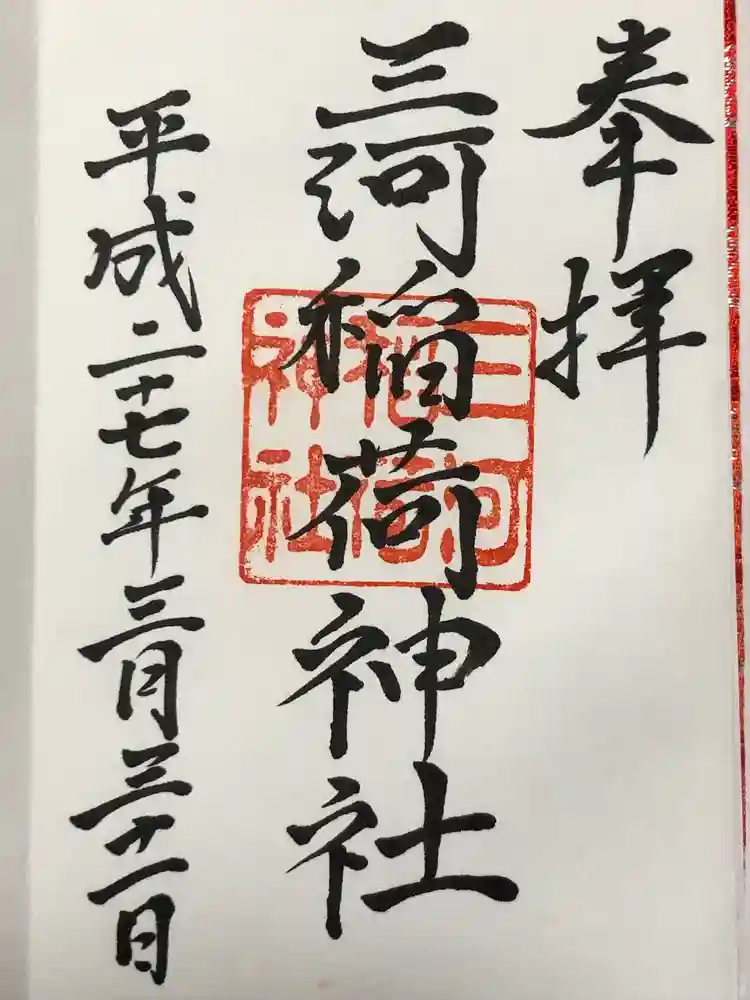 奉拝
三河稲荷神社
三河
稲荷
神社
平成二十七年三月三十一日